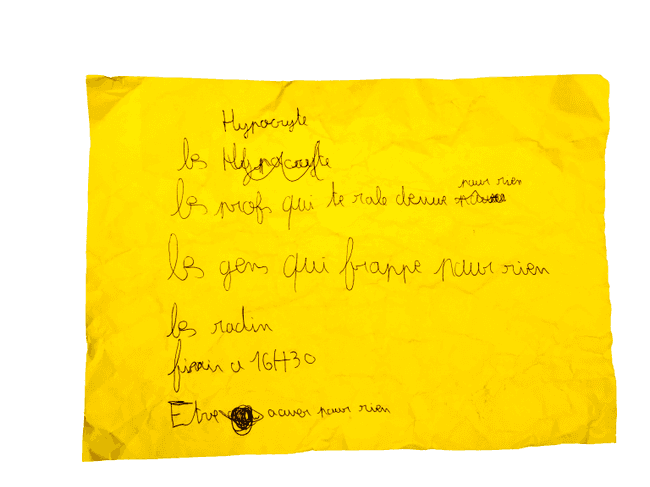 Hypocryte
les Hypocryte
les profs qui te rale deçue pour rien
les gens qui frappe pour rien
les radin
finir a 16H30
Etre acuser pour rien